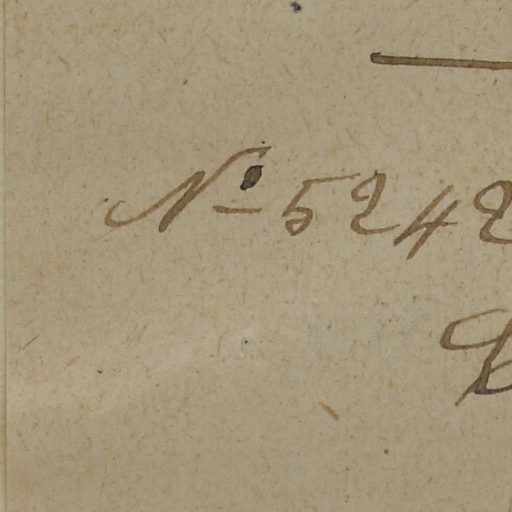 No 5242